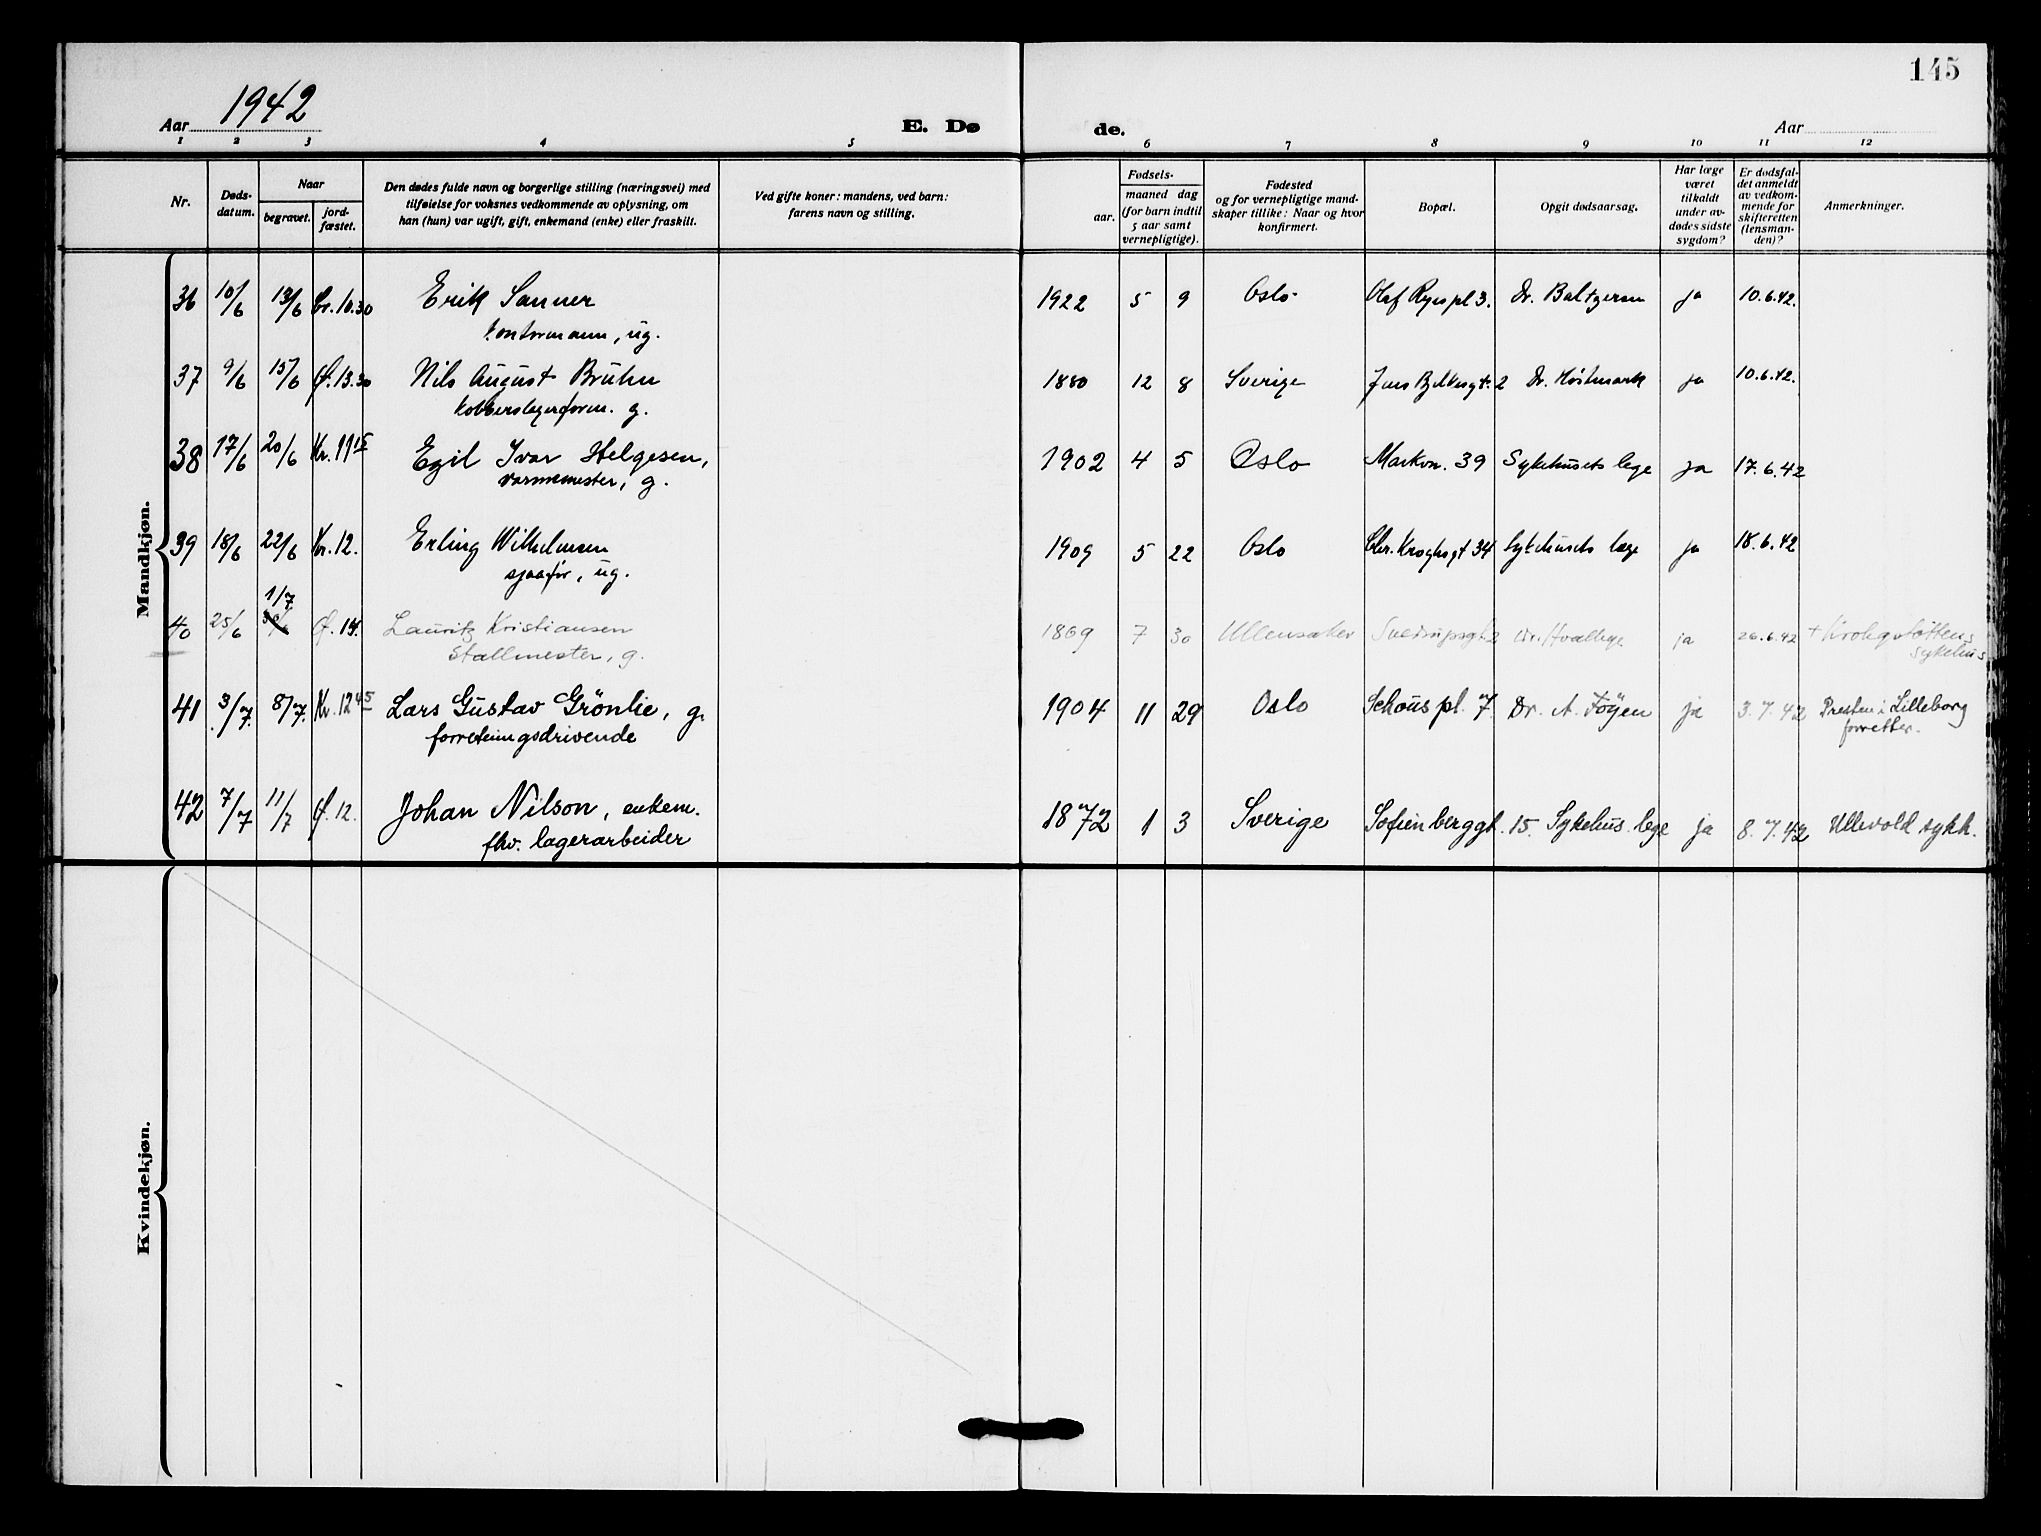 145
Aar 1942
E. Dø
de.
Aar
1 2 3 4 5 6 7 8 9 10 11 12
Nr.
Døds-
datum.
Naar
begravet.
jord-
fæstet.
Den dødes fulde navn og borgerlige stilling (næringsvei) med
tilføielse for voksnes vedkommende av oplysning, om
han (hun) var ugift, gift, enkemand (enke) eller fraskilt.
Ved gifte koner: mandens, ved barn:
farens navn og stilling.
Fødsels-
aar.
maaned dag
(for barn indtil
5 aar samt
vernepligtige).
Fødested
og for vernepligtige mand-
skaper tillike: Naar og hvor
konfirmert.
Bopæl.
Opgit dødsaarsag.
Har læge
været
tilkaldt
under av-
dødes sidste
sygdom?
Er dødsfal-
det anmeldt
av vedkom-
mende for
skifteretten
(lensman-
den)?
Anmerkninger.
Mandkjøn.
36 10/6 13/6 Cr. 10.30 Erik Sanner 1922 5 9 Oslo Olaf Ryes pl 3. Dr. Baltzersen ja 10.6.42.
kontormann, ug.
37 9/6 15/6 Ø. 13.30 Nils August Bruhn 1880 12 8 Sverige Jens Bjelkesgt. 2 Dr. Høstmark ja 10.6.42.
kobberslagerform. g.
38 17/6 20/6 Kr. 11 15 Egil Ivar Helgesen, 1902 4 5 Oslo Markvn. 39 Sykehusets lege ja 17.6.42
varmemester, g.
39 18/6 22/6 Kr. 12. Erling Wilhelmsen 1909 5 22 Oslo Chr. Kroghsgt 34 Sykehusets lege ja 18.6.42
sjaafør, ug.
1/7
40 25/6 30/6 Ø. 14. Lauritz Kristiansen 1869 7 30 Ullensaker Sverdrupsgt 2 Dr. ja 26.6.42 + Krohgstøttens
Stallmester, g. sykehus
41 3/7. 8/7. Kr. 12 45 Lars Gustav Grönlie, g. 1904 11 29 Oslo Schous pl. 7. Dr. A. Föyen ja 3.7.42 Presten i Lilleborg
forretningsdrivende forretter.
42 7/7 11/7 Ø. 12. Johan Nilson, enkem. 1872 1 3 Sverige Sofienberggt. 15. Sykehus. lege ja 8.7.42 Ullevold sykh.
fhv. lagerarbeider
Kvindekjøn.